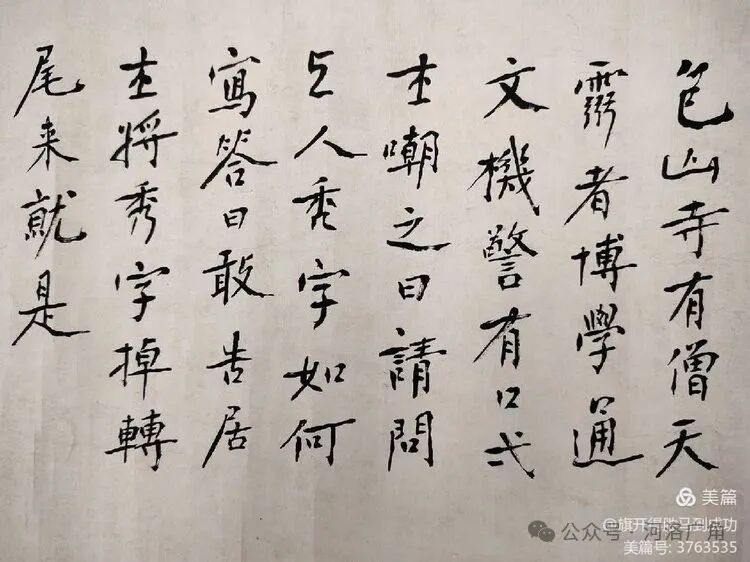 包山寺有僧天
靈者博學通
文機警有口弌
士嘲之曰請問
上人禿字如何
寫答曰敢告居
士將秀字掉轉
尾来就是
美篇
@旗开得胜马到成功
公众号·河洛广角
美篇号: 3763535